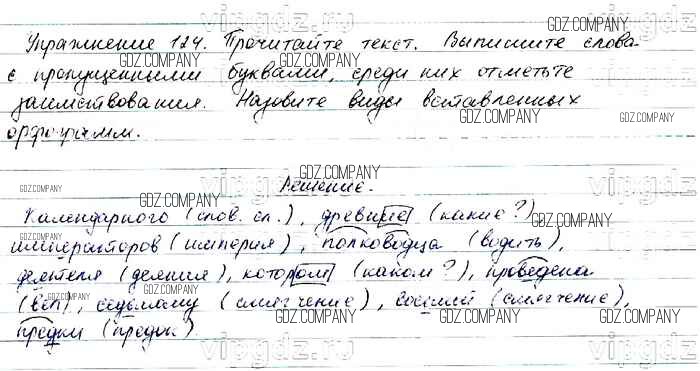 Упражнение 124. Прочитайте текст. Выпишите слова
с пропущенными буквами, среди них отметьте
заимствования. Назовите виды вставленных
орфограмм.
Решение.
Календарного (слов. сл.), древние (какие?)
императоров (империя), полководца (водить),
деятеля (деяния), котором (каком?), проведена
(вёл), седьмому (смягчение), восьмой (смягчение),
предки (предок).
GDZ.COMPANY
vipgdz.ru